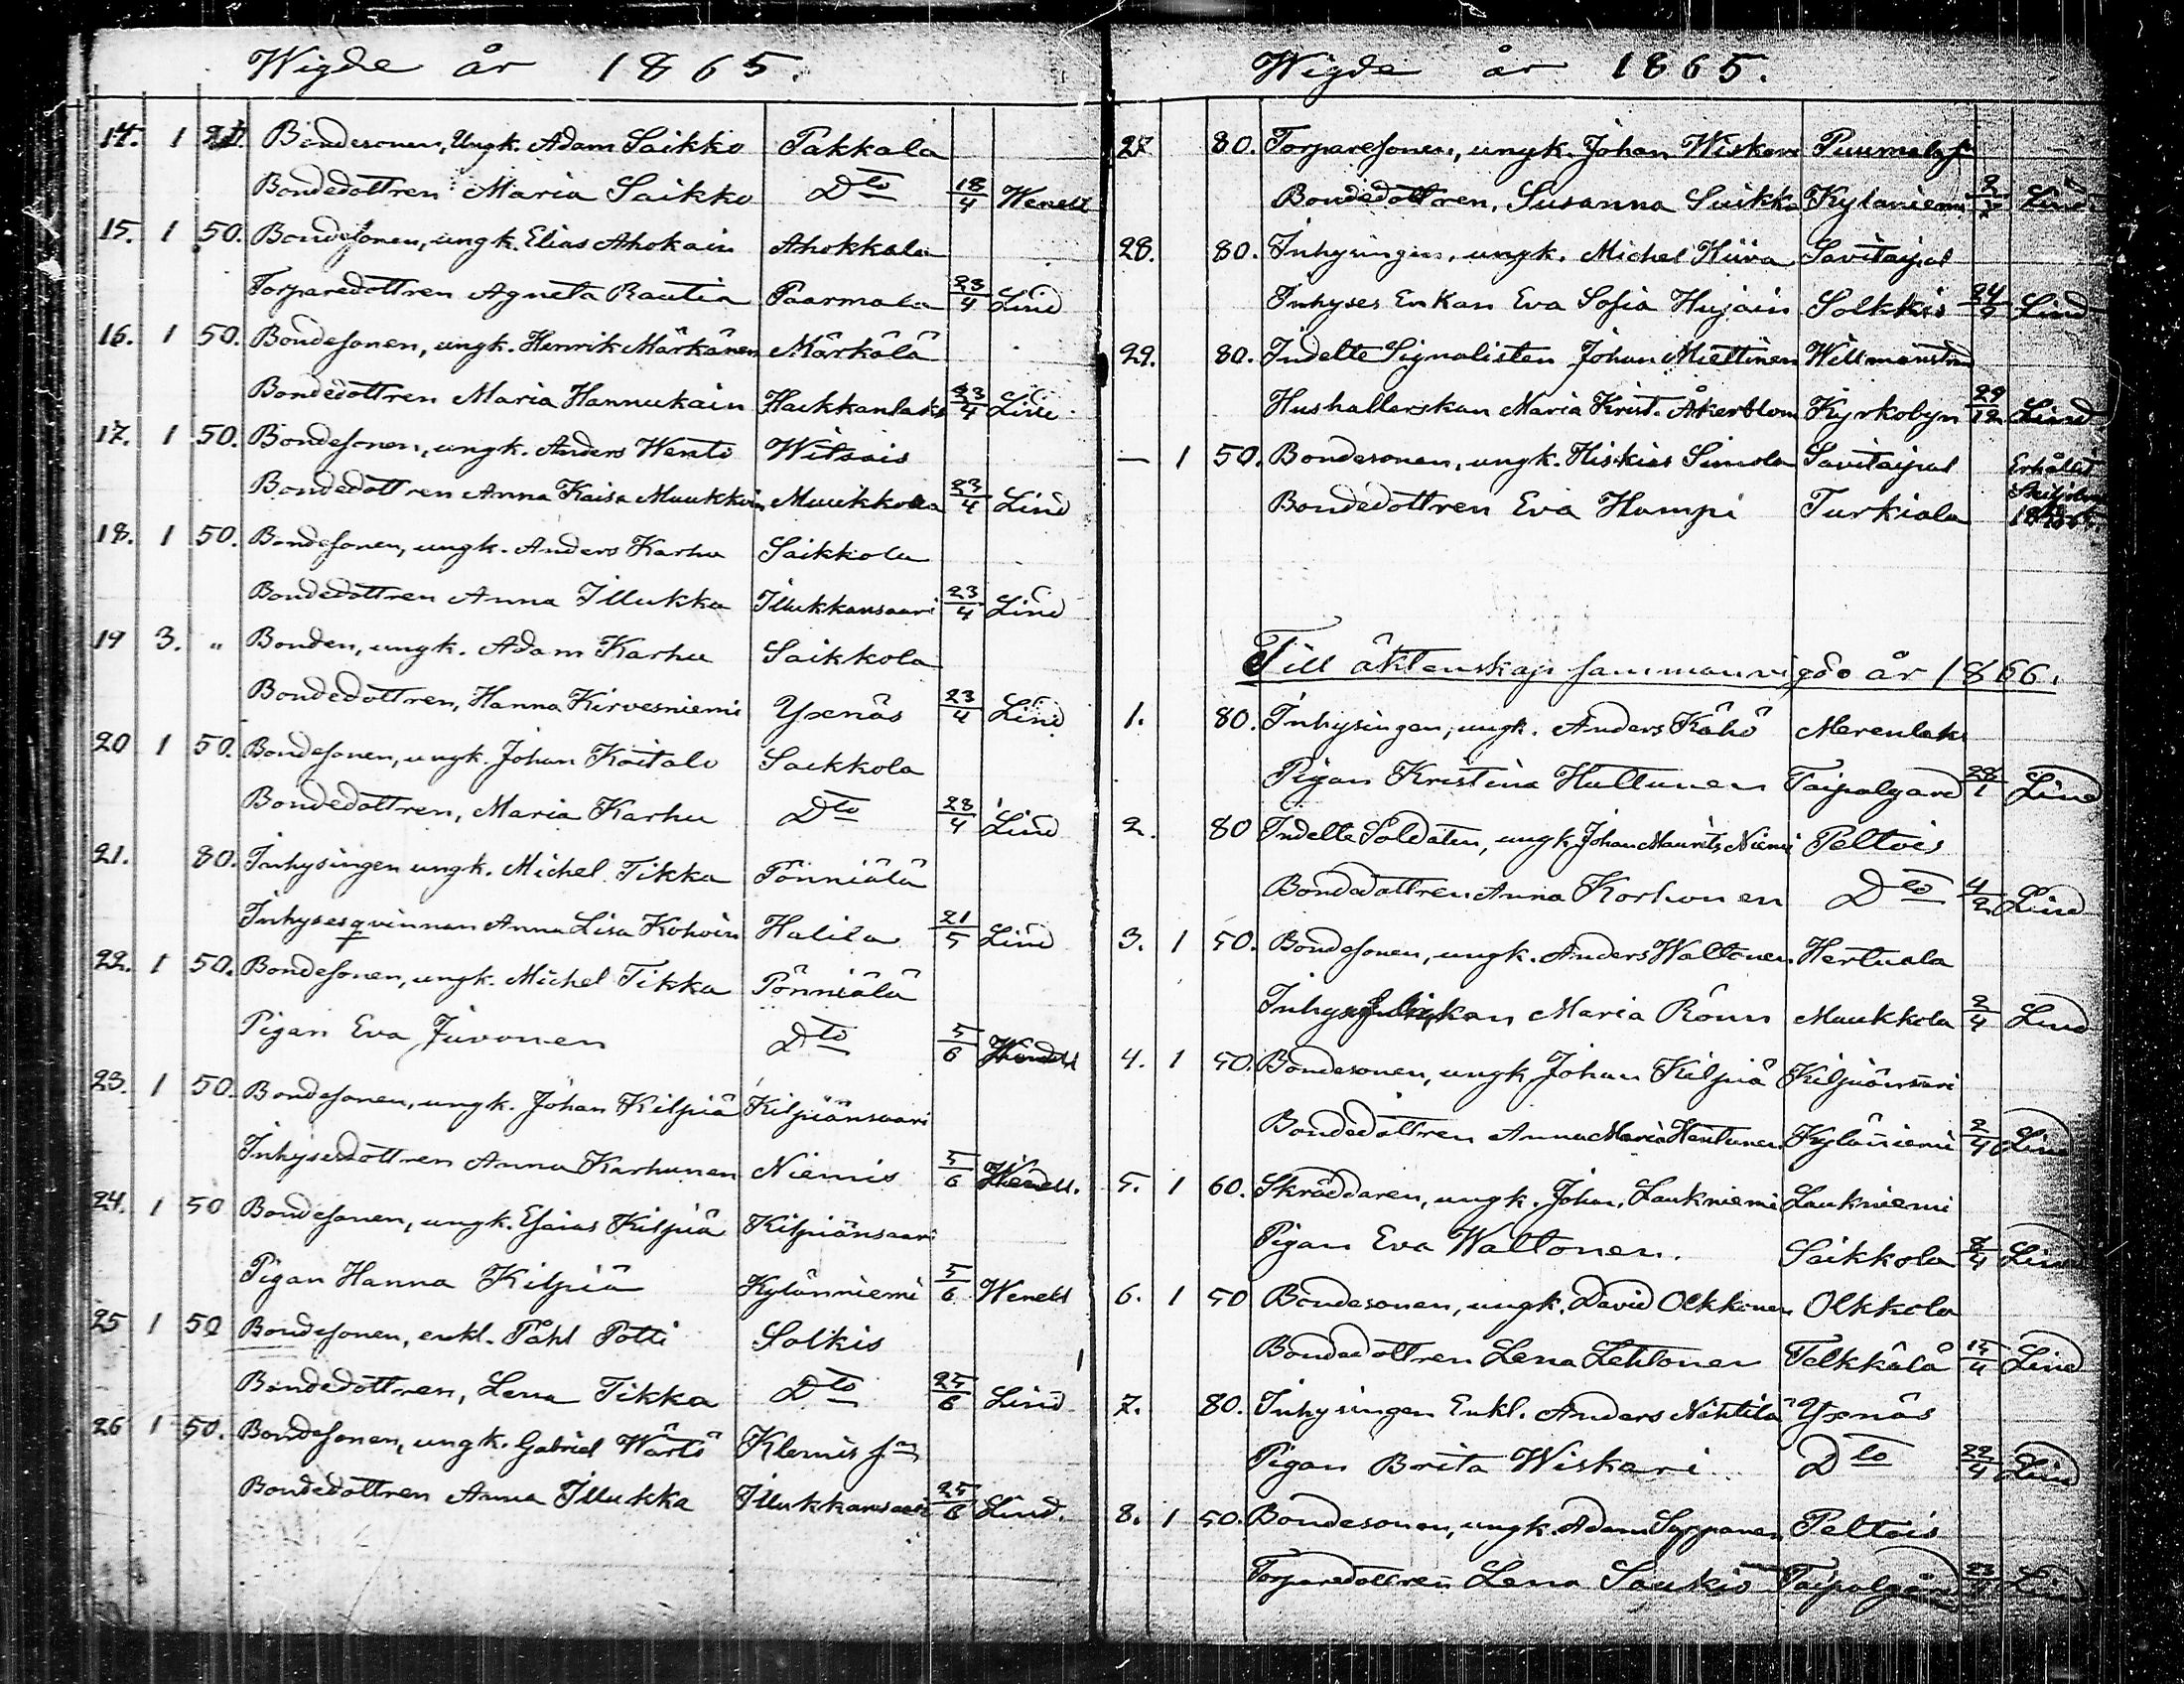 Wigde år 1865.
14. 1 Bondesonen, Ungk. Adam Saikko Pakkala
Bondedottren Maria Saikko Dto 18/4 Wenell
15. 1 50. Bondesonen, ungk. Elias Ahokain Ahokkala
Torparedottren Agneta Rautia Paarmala 23/4 Lind
16. 1 50. Bondesonen, ungk. Henrik Märkänen Märkälä
Bondedottren Maria Hannukain Haukkanlaks 23/4 Lind
17. 1 50. Bondesonen, ungk. Anders Wento Witsais
Bondedottren Anna Kaisa Muukkoin Muukkola 23/4 Lind
18. 1 50. Bondesonen, ungk. Anders Karhu Saikkola
Bondedottren Anna Illukka Illukkansaari 23/4 Lind
19 3. " Bonden, ungk. Adam Karhu Saikkola
Bondedottren, Hanna Kirvesniemi Yxnäs 23/4 Lind
20 1 50. Bondesonen, ungk. Johan Koitalo Saikkola
Bondedottren, Maria Karhu Dto 28/4 Lind
21. 80. Inhysingen ungk. Michel Tikka Pönniälä
Inhysesqvinnan Anna Lisa Kohoin Halila 21/5 Lind
22. 1 50. Bondesonen, ungk. Michel Tikka Pönniälä
Pigan Eva Juvonen Dto 5/6 Wenell
23. 1 50. Bondesonen, ungk. Johan Kilpiä Kilpiänsaari
Inhysesdottren Anna Karhunen Niemis 5/6 Wenell.
24. 1 50 Bondesonen, ungk. Esaias Kilpiä Kilpiänsaari
Pigan Hanna Kilpiä Kylänniemi 5/6 Wenell
25 1 50 Bondesonen, enkl. Påhl Potti Solkis
Bondedottren, Lena Tikka Dto 25/6 Lind
26 1 50. Bondesonen, ungk. Gabriel Wärtö Klemis
Bondedottren Anna Illukka Illukkansaari 25/6 Lind.
Wigde år 1865.
27 80. Torparesonen, ungk. Johan Wiskari Puumala
Bondedottren, Susanna Suikka Kylaniemi Lind
28. 80. Inhysingen, ungk. Michel Kiiva Savitaipal
Inhyses Enkan Eva Sofia Hujain Solkkis Lind
29. 80. Indelte Signalisten Johan Miettinen Willmanstrand
Hushallerskan Maria Krist. Åkerblom Kyrkobyn 29/12 Lind
— 1 50. Bondesonen, ungk. Hiskias Simola Savitaipal Erhållit
Bondedottren Eva Humpi Turkiala
Till äktenskap sammanvigde år 1866.
1. 80. Inhysingen, ungk. Anders Kähö Merenlaks
Pigan Kristina Huttunen Taipalgård Lind
2. 80 Indelte Soldaten, ungk. Johan Maurits Niemi Peltois
Bondedottren Anna Korhonen Dto 4/2 Lind
3. 1 50. Bondesonen, ungk. Anders Waltonen Hertuala
Maria Rönn Muukkola 2/4 Lind
4. 1 50. Bondesonen, ungk Johan Kilpiä Kilpiänsaari
Bondedottren Anna Maria Hentunen Kyläniemi 2/4 Lind
5. 1 60. Skräddaren, ungk. Johan Laukniemi Laukniemi
Pigan Eva Waltonen. Saikkola 8/4 Lind
6. 1 50 Bondesonen, ungk. David Olkkonen Olkkola
Bondedottren Lena Lehtonen Telkkälä 15/4 Lind
7. 80. Inhysingen Enkl. Anders Nihtilä Yxnäs
Pigan Brita Wiskari Dto 22/4 Lind
8. 1 50. Bondesonen, ungk. Adam Syppanen Peltois
Torparedottren Lena Saukio Taipalgård Lind